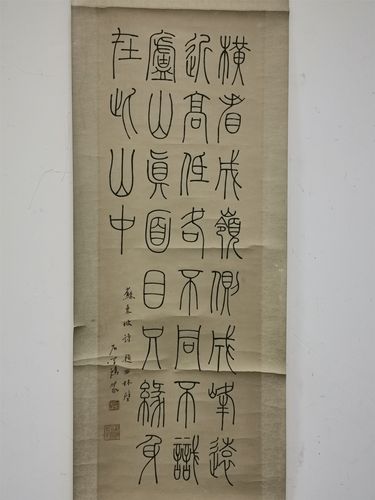 橫看成嶺側成峰遠
近高低各不同不識
盧山眞面目只緣身
在此山中
蘇東坡詩題西林壁